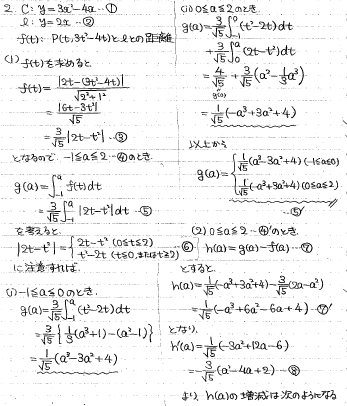 2. C: y=3x²-4x …①
l: y=2x …②
f(t): P(t, 3t²-4t) と l との距離
(1) f(t)を求めると
f(t) = |2t-(3t²-4t)| / √(2²+1²)
= |6t-3t²| / √5
= 3/√5 |2t-t²| …③
となるので、-1≦a≦2 …④ のとき
g(a) = ∫_{-1}^{a} f(t)dt
= 3/√5 ∫_{-1}^{a} |2t-t²| dt …⑤
を考えると、
|2t-t²| = { 2t-t² (0≦t≦2)
t²-2t (t≦0, または t≧2) …⑥
に注意すれば、
(i) -1≦a≦0 のとき、
g(a) = 3/√5 ∫_{-1}^{a} (t²-2t)dt
= 3/√5 { 1/3 (a³+1) - (a²-1) }
= 1/√5 (a³-3a²+4)
(ii) 0≦a≦2 のとき、
g(a) = 3/√5 ∫_{-1}^{0} (t²-2t)dt
+ 3/√5 ∫_{0}^{a} (2t-t²)dt
= 4/√5 + 3/√5 (a²-1/3 a³)
g(0)
= 1/√5 (-a³+3a²+4)
以上から
g(a) = { 1/√5 (a³-3a²+4) (-1≦a≦0)
1/√5 (-a³+3a²+4) (0≦a≦2)
…⑤'
(2) 0≦a≦2 …④' のとき
h(a) = g(a)-f(a) …⑦
とすると、
h(a) = 1/√5 (-a³+3a²+4) - 3/√5 (2a-a²)
= 1/√5 (-a³+6a²-6a+4) …⑦'
となり、
h'(a) = 1/√5 (-3a²+12a-6)
= -3/√5 (a²-4a+2) …⑧
より、h(a)の増減は次のようになる